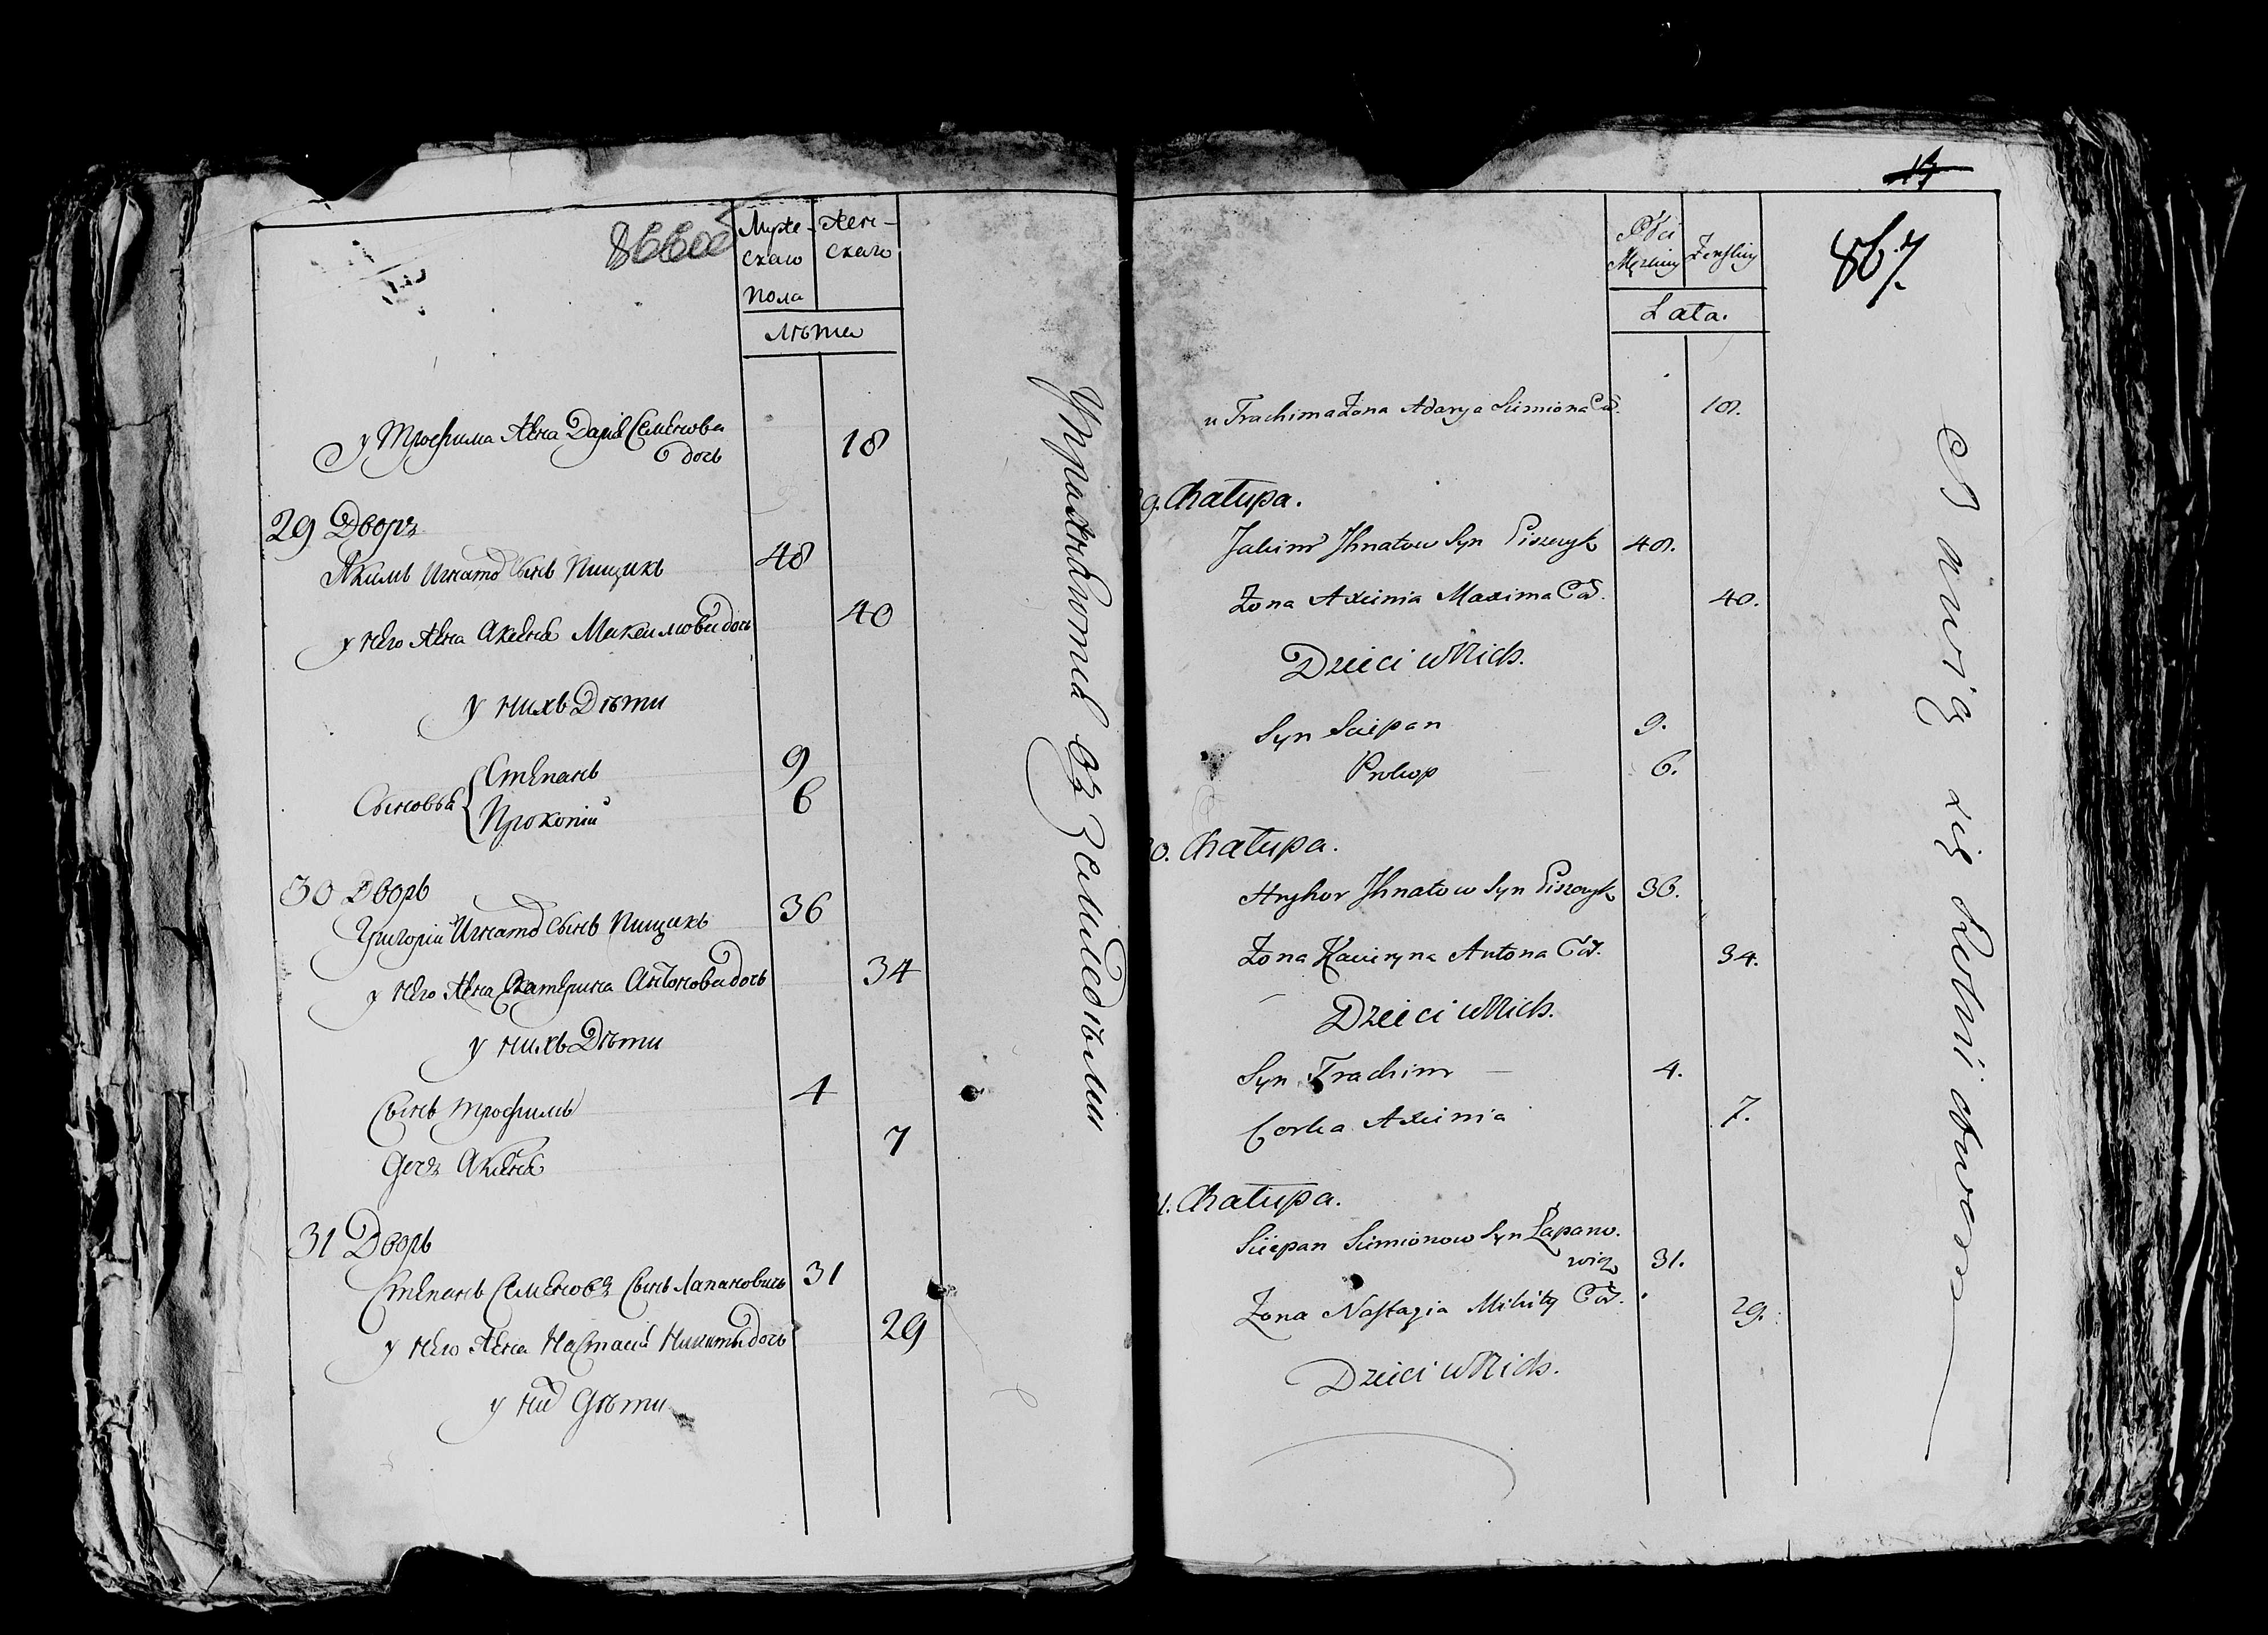 866об
Муже- Жен-
скаго скаго
пола
лѣта
у Трофима жена Дарья Семенова
дочь 18
29 Дворъ
Якимъ Игнатов Сынъ Пищикъ 48
у него жена Аксенья Максимова дочь 40
у нихъ Дѣти
Сыновья { Степанъ 9
Прокопій 6
30 Дворъ
Григорій Игнатов Сынъ Пищикъ 36
у него жена Екатерина Антонова дочь 34
у нихъ Дѣти
Сынъ Трофимъ 4
Дочь Аксенья 7
31 Дворъ
Степанъ Семеновъ Сынъ Лапановичъ 31
у него жена Настасья Никиты дочь 29
у них Дѣти
Упражняются въ Земледѣлии
14
867.
Płci
Męzkiey Żeńskiey
Lata.
u Trachima Żona Adarya Simiona Cór. 18.
9. Chałupa.
Jakim Ihnatow Syn Piszczyk 48.
Żona Axinia Maxima Cór. 40.
Dzieci w Nich.
Syn Sciepan 9.
Prokop 6.
0. Chałupa.
Hryhor Ihnatow Syn Piszczyk 36.
Żona Kaciryna Antona Cór. 34.
Dzieci w Nich.
Syn Trachim 4.
Corka Axinia 7.
1. Chałupa.
Sciepan Simionow Syn Łapano-
wicz 31.
Żona Nastazia Mikity Cór. 29.
Dzieci w Nich.
Bawią się Rolnictwem